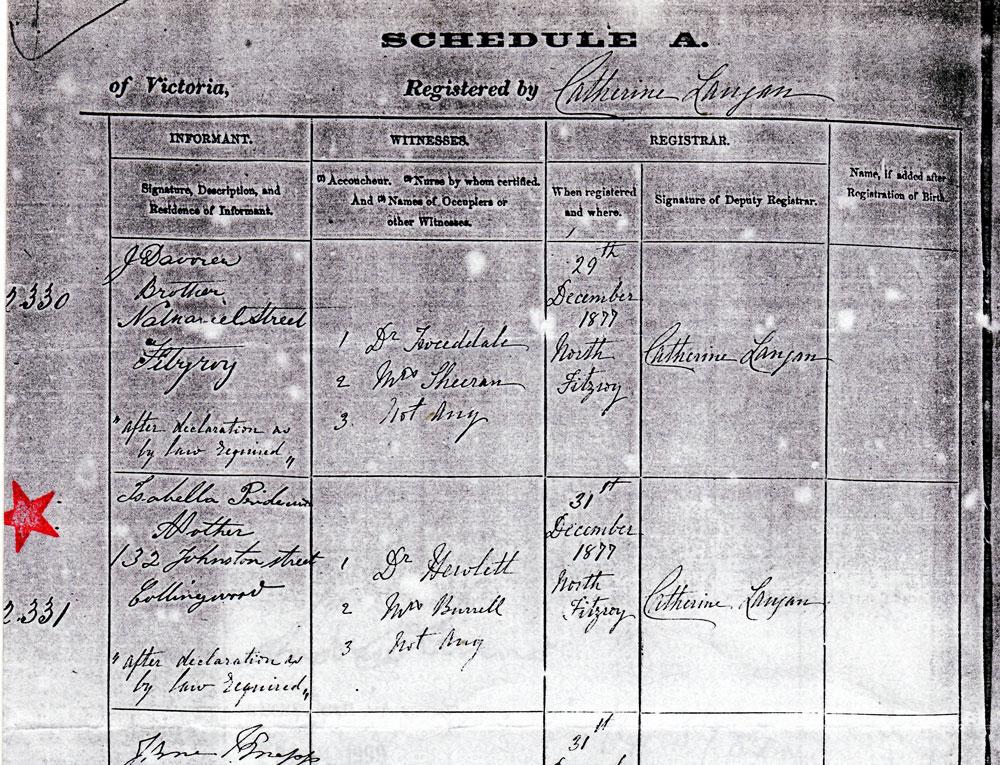 SCHEDULE A.
of Victoria, Registered by Catherine Langan
INFORMANT. WITNESSES. REGISTRAR.
Signature, Description, and
Residence of Informant.
(1) Accoucheur. (2) Nurse by whom certified.
And (3) Names of Occupiers or
other Witnesses.
When registered
and where.
Signature of Deputy Registrar.
Name, if added after
Registration of Birth.
2.330
J Davoren
Brother
Nathaniel Street
Fitzroy
"after declaration as
by law required"
1 Dr Tweeddale
2 Mrs Sheeran
3. Not Any
29th
December
1877
North
Fitzroy
Catherine Langan
2.331
Isabella
Mother
132 Johnston street
Collingwood
"after declaration as
by law required"
1 Dr Hewlett
2 Mrs Burrell
3 Not Any
31st
December
1877
North
Fitzroy
Catherine Langan
31st